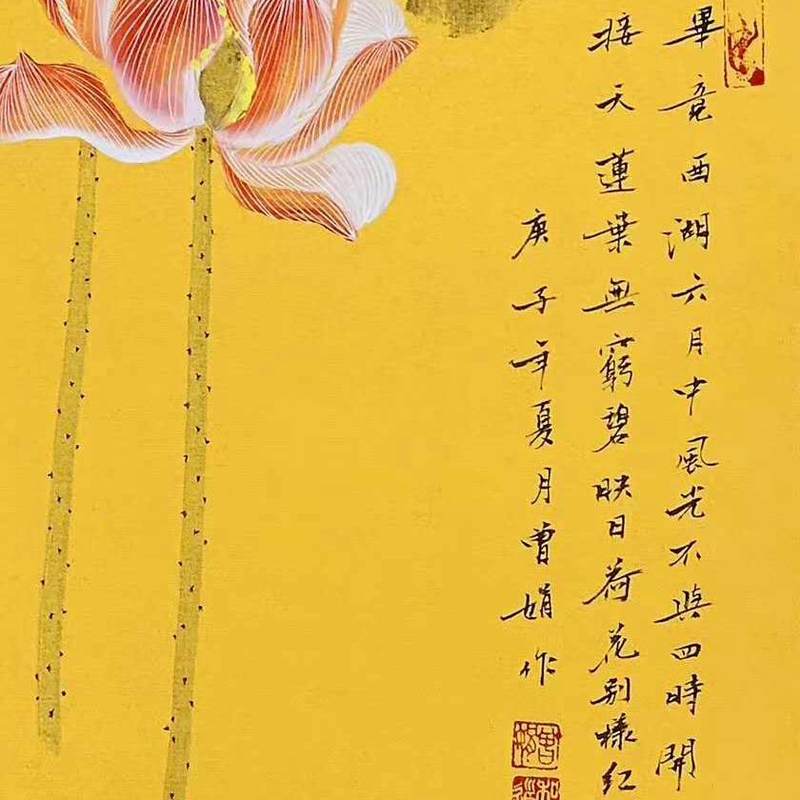 畢竟西湖六月中風光不與四時開
接天蓮葉無窮碧映日荷花别樣紅
庚子年夏月曾娟作